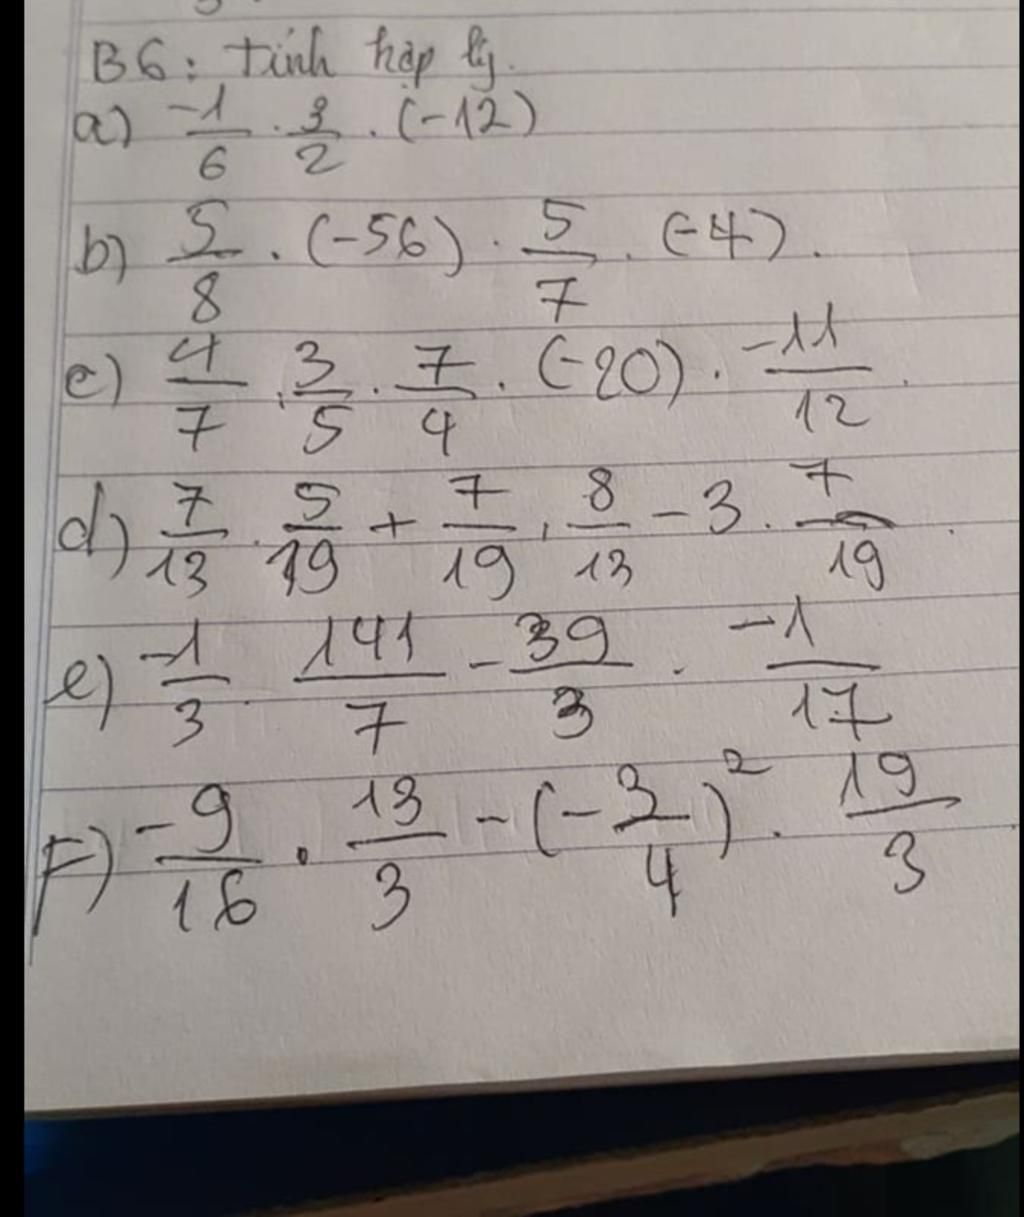 B6: Tính hợp lý.
a) -1/6 . 3/2 . (-12)
b) 5/8 . (-56) . 5/7 . (-4) .
c) 4/7 . 3/5 . 7/4 . (-20) . -11/12 .
d) 7/13 . 5/19 + 7/19 . 8/13 - 3 . 7/19 .
e) -1/3 . 141/7 - 39/3 . -1/17
F) -9/16 . 13/3 - (-3/4)² . 19/3